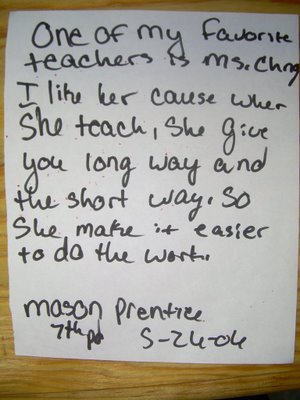 One of my favorite
teachers is Ms. Chng
I like her cause when
She teach, She give
you long way and
the short way. So
She make it easier
to do the work.
mason prentice
7th pd
5-24-04